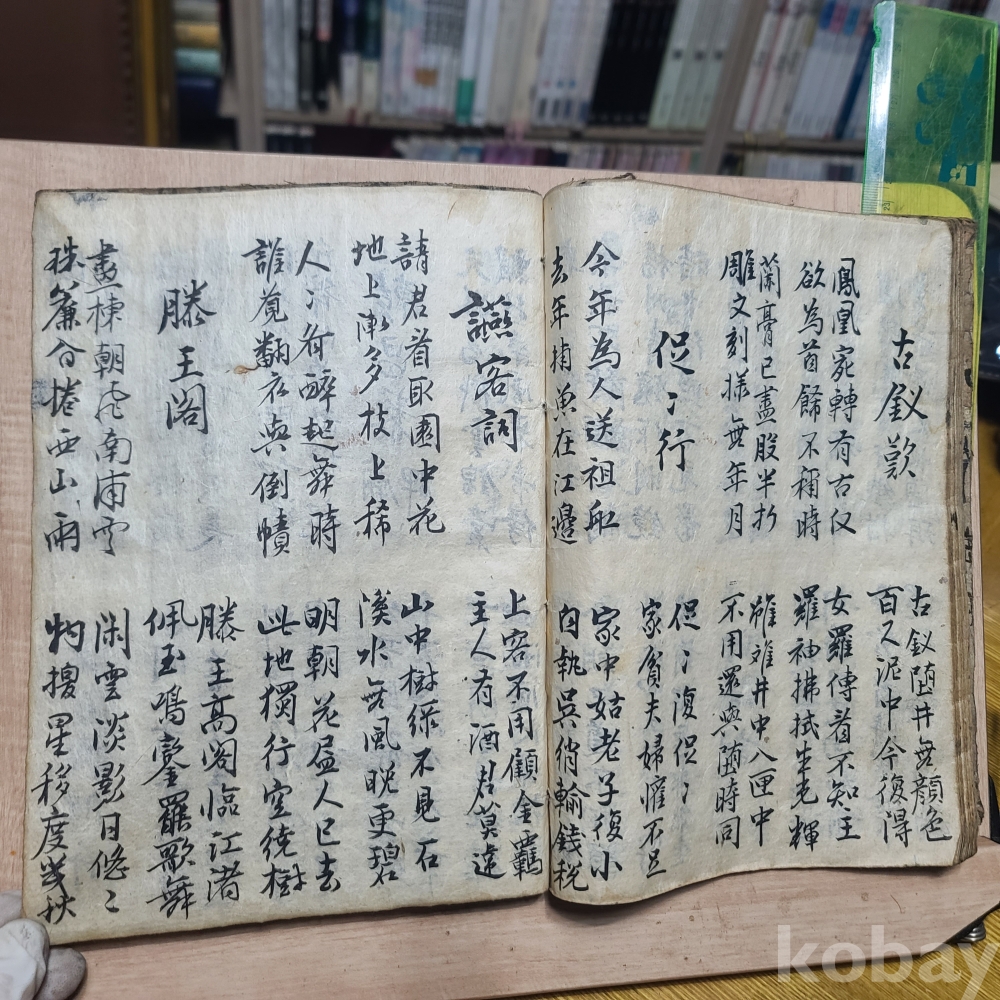 古釵歎
古釵墮井無顔色
百尺泥中今復得
鳳凰宛轉有古仪
欲為首餙不稱時
女羅傳看不知主
羅袖拂拭生光輝
蘭膏已盡股半折
雕文刻樣無年月
雖難井中入匣中
不用還與墮時同
促〻行
促〻復促〻
家貧夫婦懽不足
今年為人送租船
去年捕魚在江邊
家中姑老子復小
自執吳綃輸錢税
讌客詞
上客不用顧金羈
主人有酒君莫違
請君看取園中花
地上漸多枝上稀
山中樹緑不見石
溪水無風晩更碧
人〻有醉起舞時
誰覓翻衣與倒幘
明朝花盡人已去
此地獨行空繞樹
滕王閣
滕王高閣臨江渚
佩玉鳴鑾罷歌舞
畫棟朝飛南浦雲
珠簾合捲西山雨
閑雲淡影日悠〻
物換星移度幾秋
kobay